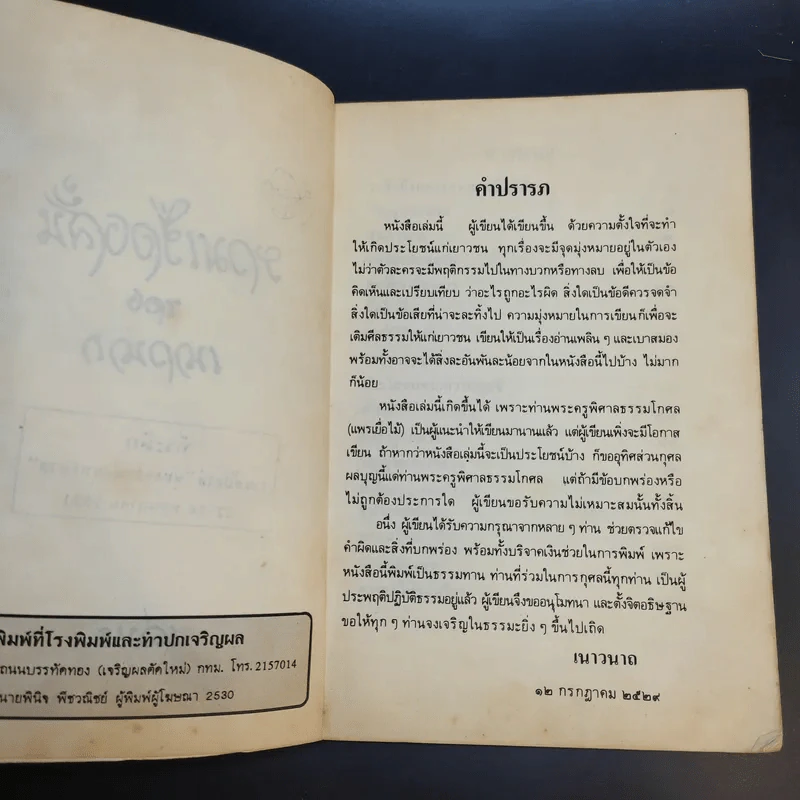 พิมพ์ที่โรงพิมพ์และทำปกเจริญผล
ถนนบรรทัดทอง (เจริญผลตัดใหม่) กทม. โทร. 2157014
นายพินิจ พีชวณิชย์ ผู้พิมพ์ผู้โฆษณา 2530
คำปรารภ
หนังสือเล่มนี้ ผู้เขียนได้เขียนขึ้น ด้วยความตั้งใจที่จะทำ
ให้เกิดประโยชน์แก่เยาวชน ทุกเรื่องจะมีจุดมุ่งหมายอยู่ในตัวเอง
ไม่ว่าตัวละครจะมีพฤติกรรมไปในทางบวกหรือทางลบ เพื่อให้เป็นข้อ
คิดเห็นและเปรียบเทียบ ว่าอะไรถูกอะไรผิด สิ่งใดเป็นข้อดีควรจดจำ
สิ่งใดเป็นข้อเสียที่น่าจะละทิ้งไป ความมุ่งหมายในการเขียนก็เพื่อจะ
เติมศีลธรรมให้แก่เยาวชน เขียนให้เป็นเรื่องอ่านเพลิน ๆ และเบาสมอง
พร้อมทั้งอาจจะได้สิ่งละอันพันละน้อยจากในหนังสือนี้ไปบ้าง ไม่มาก
ก็น้อย
หนังสือเล่มนี้เกิดขึ้นได้ เพราะท่านพระครูพิศาลธรรมโกศล
(แพรเยื่อไม้) เป็นผู้แนะนำให้เขียนมานานแล้ว แต่ผู้เขียนเพิ่งจะมีโอกาส
เขียน ถ้าหากว่าหนังสือเล่มนี้จะเป็นประโยชน์บ้าง ก็ขออุทิศส่วนกุศล
ผลบุญนี้แด่ท่านพระครูพิศาลธรรมโกศล แต่ถ้ามีข้อบกพร่องหรือ
ไม่ถูกต้องประการใด ผู้เขียนขอรับความไม่เหมาะสมนั้นทั้งสิ้น
อนึ่ง ผู้เขียนได้รับความกรุณาจากหลาย ๆ ท่าน ช่วยตรวจแก้ไข
คำผิดและสิ่งที่บกพร่อง พร้อมทั้งบริจาคเงินช่วยในการพิมพ์ เพราะ
หนังสือนี้พิมพ์เป็นธรรมทาน ท่านที่ร่วมในการกุศลนี้ทุกท่าน เป็นผู้
ประพฤติปฏิบัติธรรมอยู่แล้ว ผู้เขียนจึงขออนุโมทนา และตั้งจิตอธิษฐาน
ขอให้ทุก ๆ ท่านจงเจริญในธรรมะยิ่ง ๆ ขึ้นไปเถิด
เนาวนาถ
๑๒ กรกฎาคม ๒๕๒๙